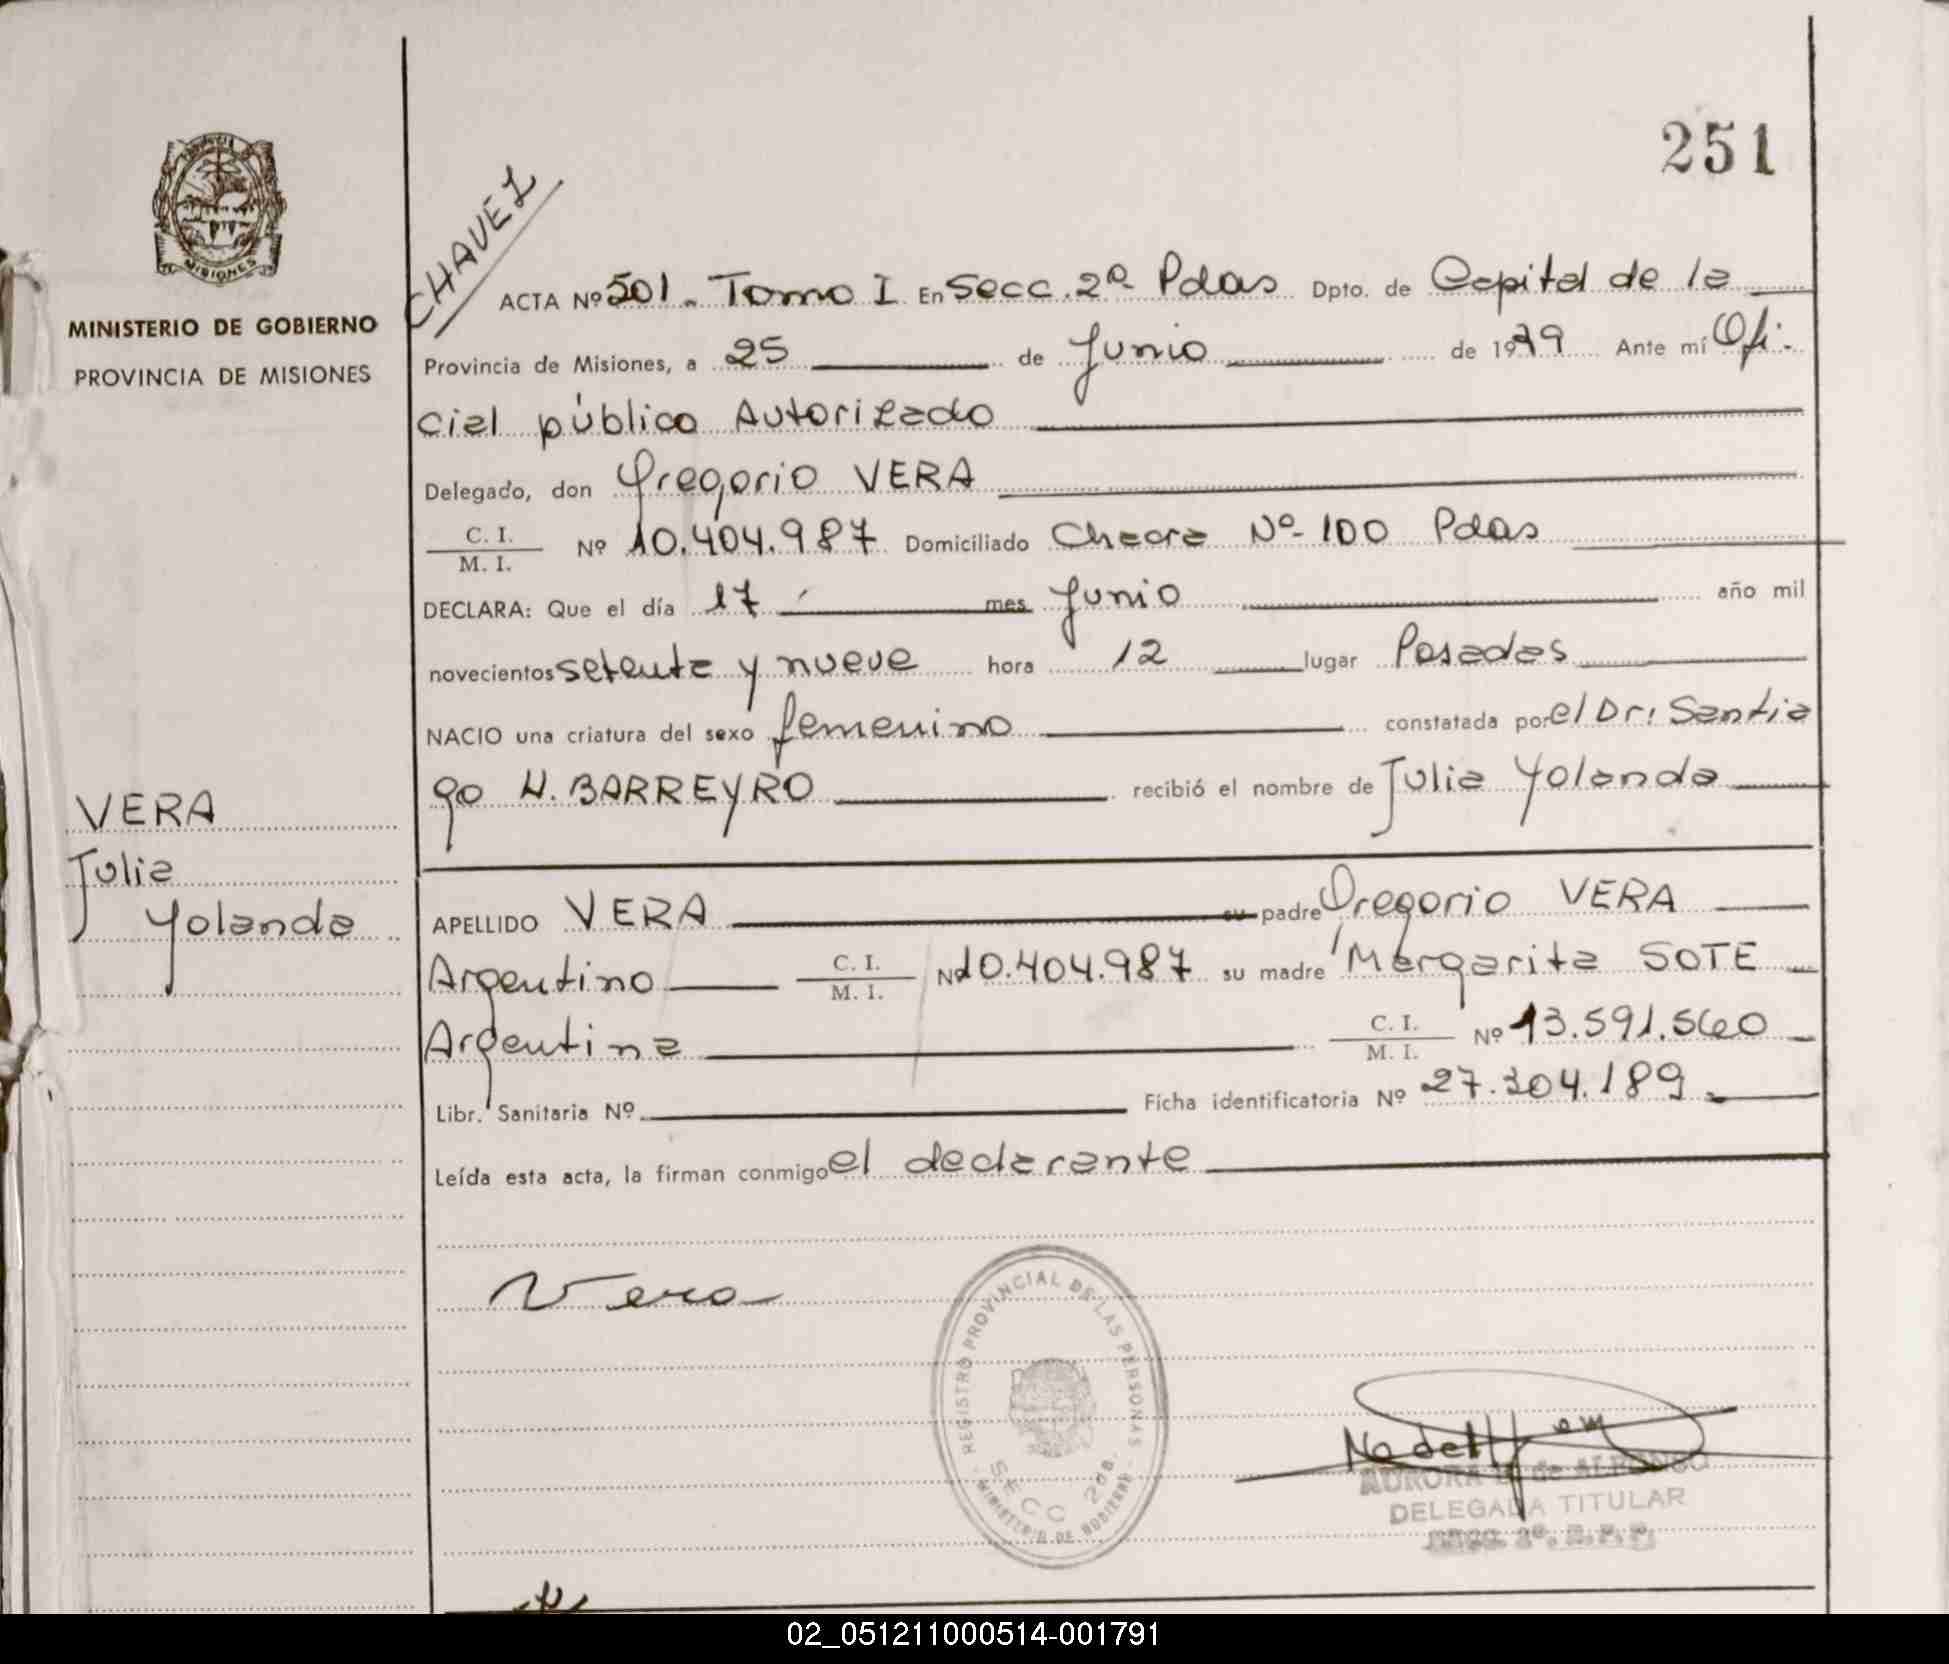 251
CHAVEZ
MINISTERIO DE GOBIERNO
PROVINCIA DE MISIONES
MISIONES
ACTA Nº 501. Tomo I En Secc. 2ª Pdas Dpto. de Capital de la
Provincia de Misiones, a 25 de Junio de 1979 Ante mí Ofi-
cial público Autorizado
Delegado, don Gregorio VERA
C. I.
M. I. Nº 10.404.987 Domiciliado Chacra Nº 100 Pdas
DECLARA: Que el día 17 mes Junio año mil
novecientos setenta y nueve hora 12 lugar Posadas
NACIO una criatura del sexo femenino constatada por el Dr. Santia
go H. BARREYRO recibió el nombre de Julia Yolanda
VERA
Julia
Yolanda
APELLIDO VERA su padre Gregorio VERA
Argentino C. I. M. I. Nº 10.404.987 su madre Margarita SOTE
Argentina C. I. M. I. Nº 13.591.560
Libr. Sanitaria Nº Ficha identificatoria Nº 27.304.189
Leída esta acta, la firman conmigo el declarante
Vera
REGISTRO PROVINCIAL DE LAS PERSONAS
SECC 2DA.
MINISTERIO DE GOBIERNO
AURORA de ALFONSO
DELEGADA TITULAR
SECC. 2ª. R.P.P.
02_051211000514-001791